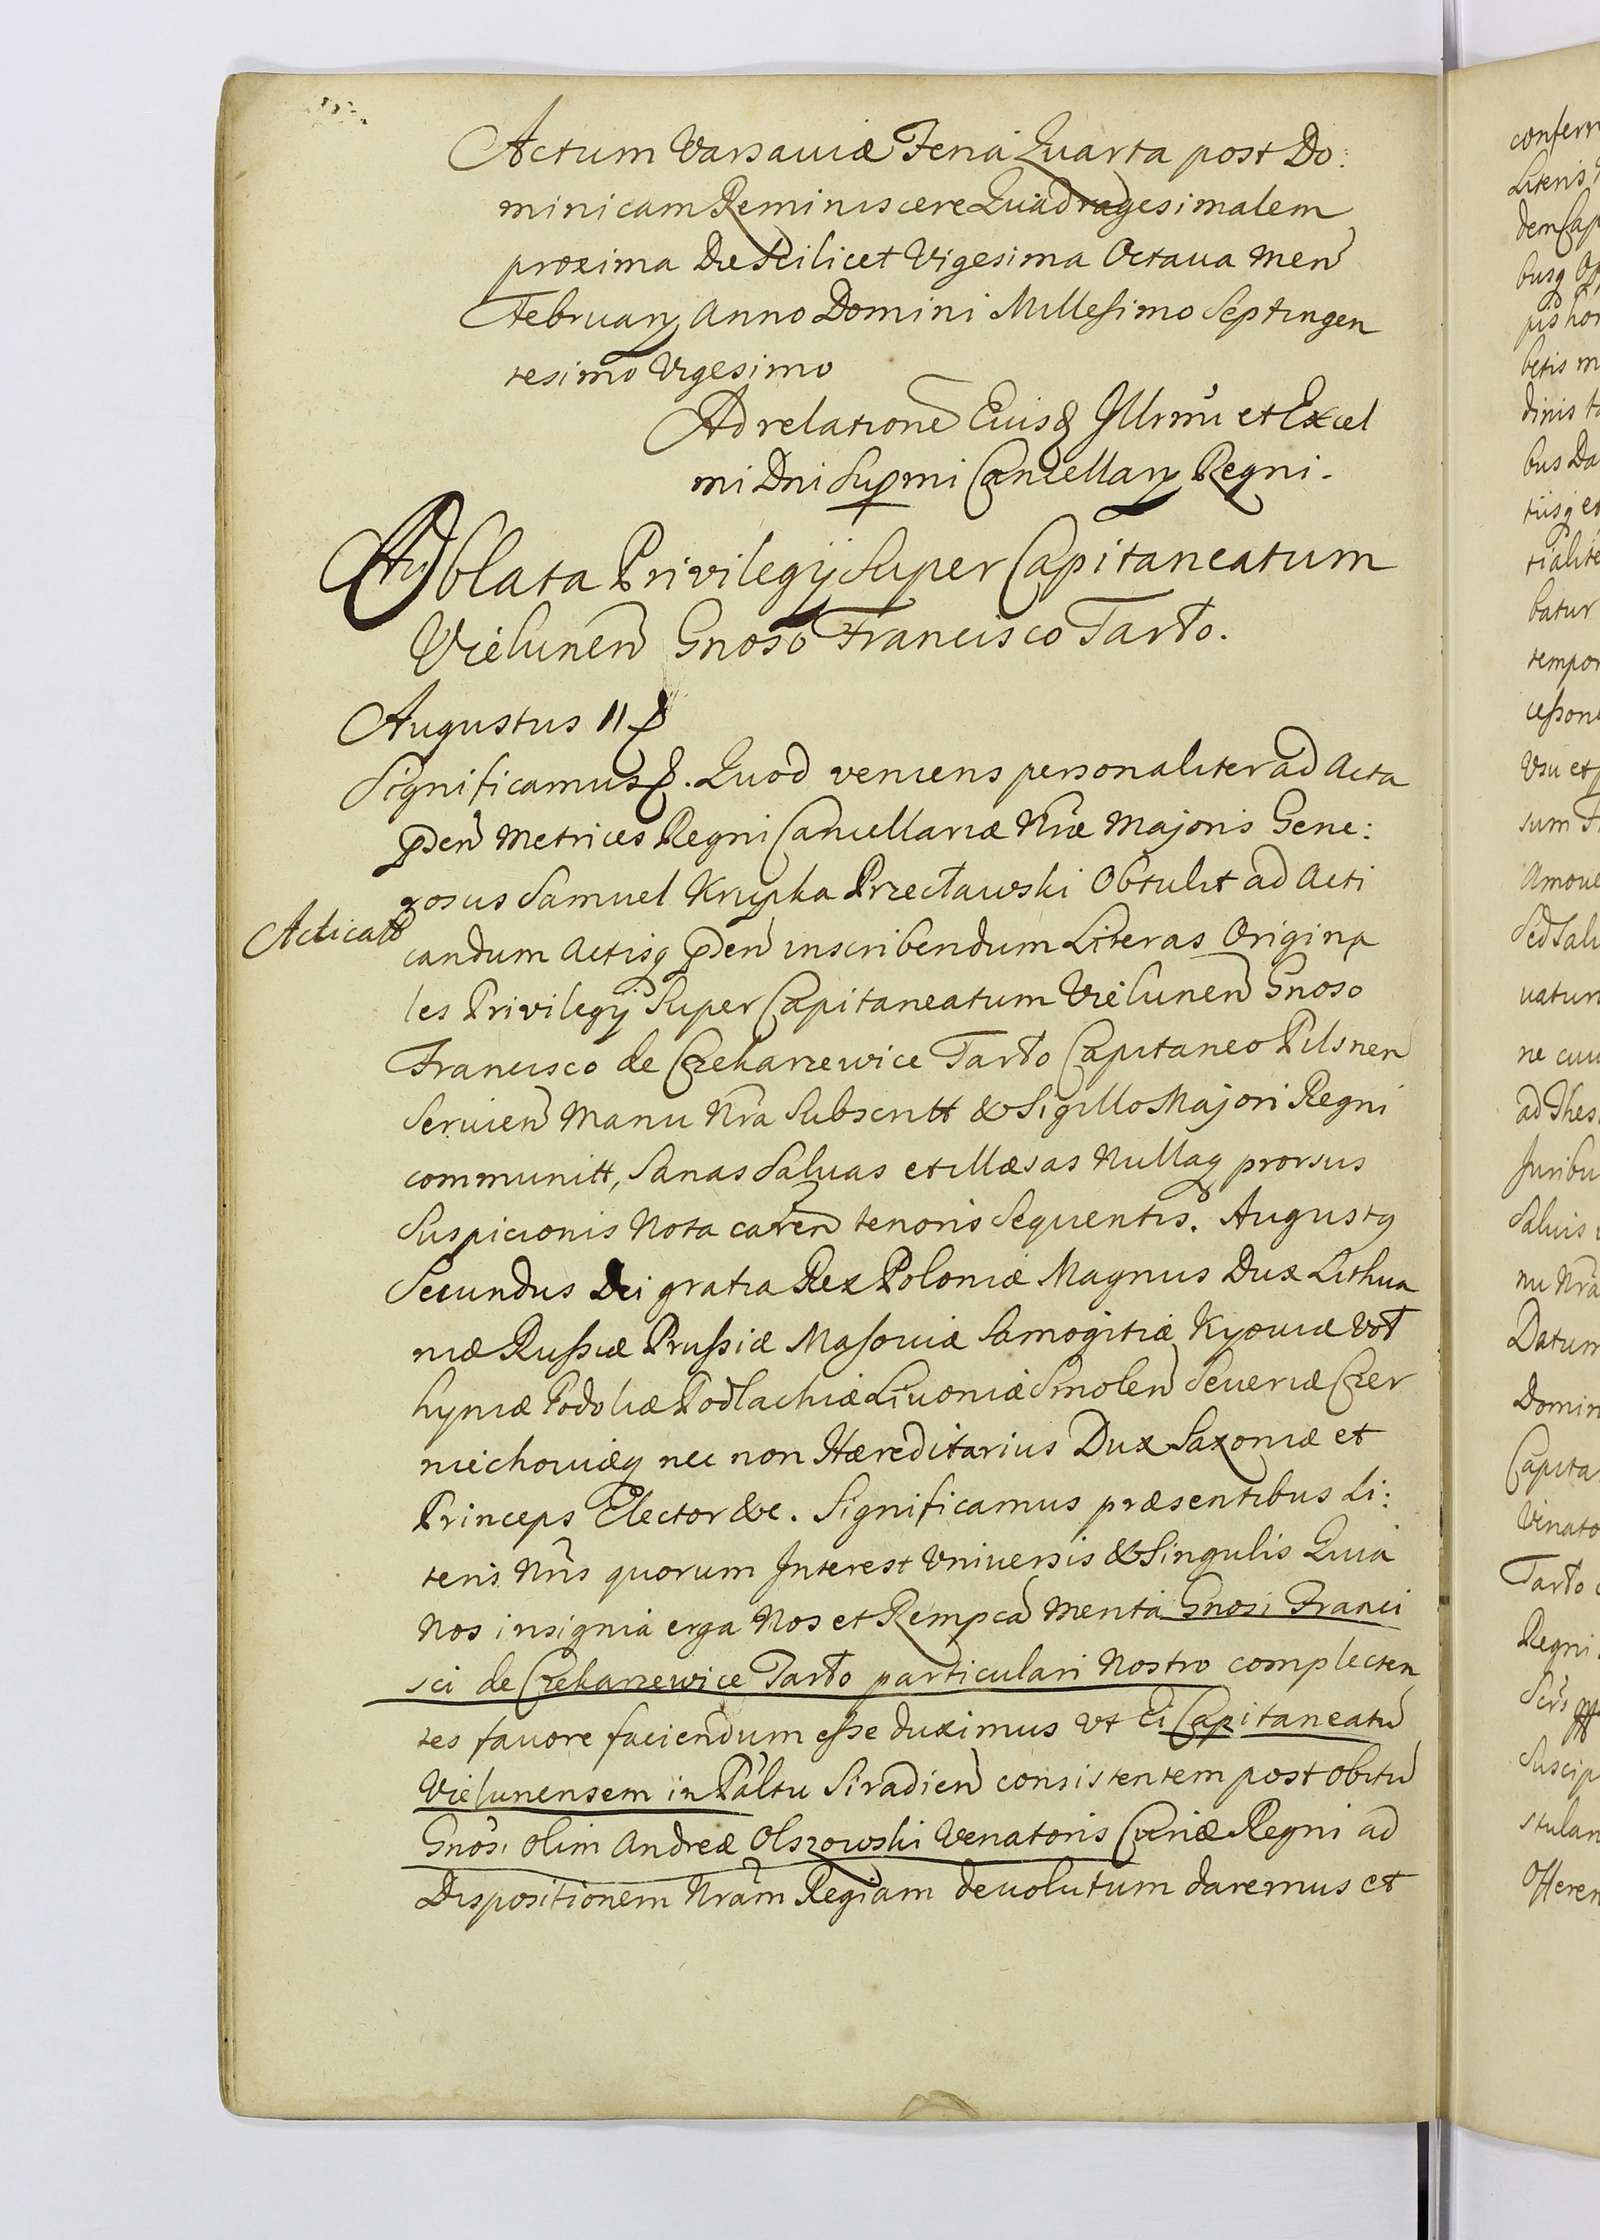 Actum Varsaviæ Feria Quarta post Do:
minicam Reminiscere Quadragesimalem
proxima Die Scilicet Vigesima Octava Men
Februarij Anno Domini Millesimo Septingen
tesimo Vigesimo
Ad relationē Eiusd Illrmi et Excel
mi Dni Supmi Cancellarij Regni.
Oblata Privilegij Super Capitaneatum
Vielunen Gnoso Francisco Tarło.
Augustus II
Significamus &. Quod veniens personaliter ad Acta
pden Metrices Regni Cancellariæ Nræ Majoris Gene:
rosus Samuel Krypka Przecławski Obtulit ad Acti
Acticatō
candum Actisq pden inscribendum Literas Origina
les Privilegij Super Capitaneatum Vielunen Gnoso
Francisco de Czekarzewice Tarło Capitaneo Pilsnen
Servien Manu Nra Subscritt & Sigillo Majori Regni
communitt, Sanas Salvas et illæsas Nullaq prorsus
Suspicionis Nota caren tenoris Sequentis. Augustq
Secundus Dei gratia Rex Poloniæ Magnus Dux Lithua
niæ Russiæ Prussiæ Masoviæ Samogitiæ Kyoviæ Vol
hyniæ Podoliæ Podlachiæ Livoniæ Smolen Severiæ Czer
niechoviæq nec non Hæreditarius Dux Saxoniæ et
Princeps Elector &c. Significamus præsentibus Li:
teris Nris quorum Interest Vniversis & Singulis Quia
Nos insignia erga Nos et Rempcā Merita Gnosi Franci
sci de Czekarzewice Tarło particulari Nostro complecten
tes favore faciendum esse duximus Vt Ei Capitaneatū
Vielunensem in Pältu Siradien consistentem post obitū
Gnosi olim Andreæ Olszowski Venatoris Curiæ Regni ad
Dispositionem Nram Regiam devolutum daremus et